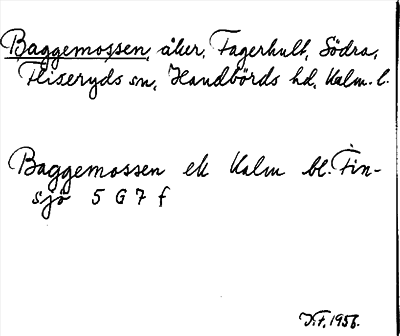 Baggemossen, åker, Fagerhult, Södra,
Fliseryds sn, Handbörds hd, Kalm. l.
Baggemossen ek Kalm bl. Fin-
sjö 5 G 7 f
J.F. 1956.